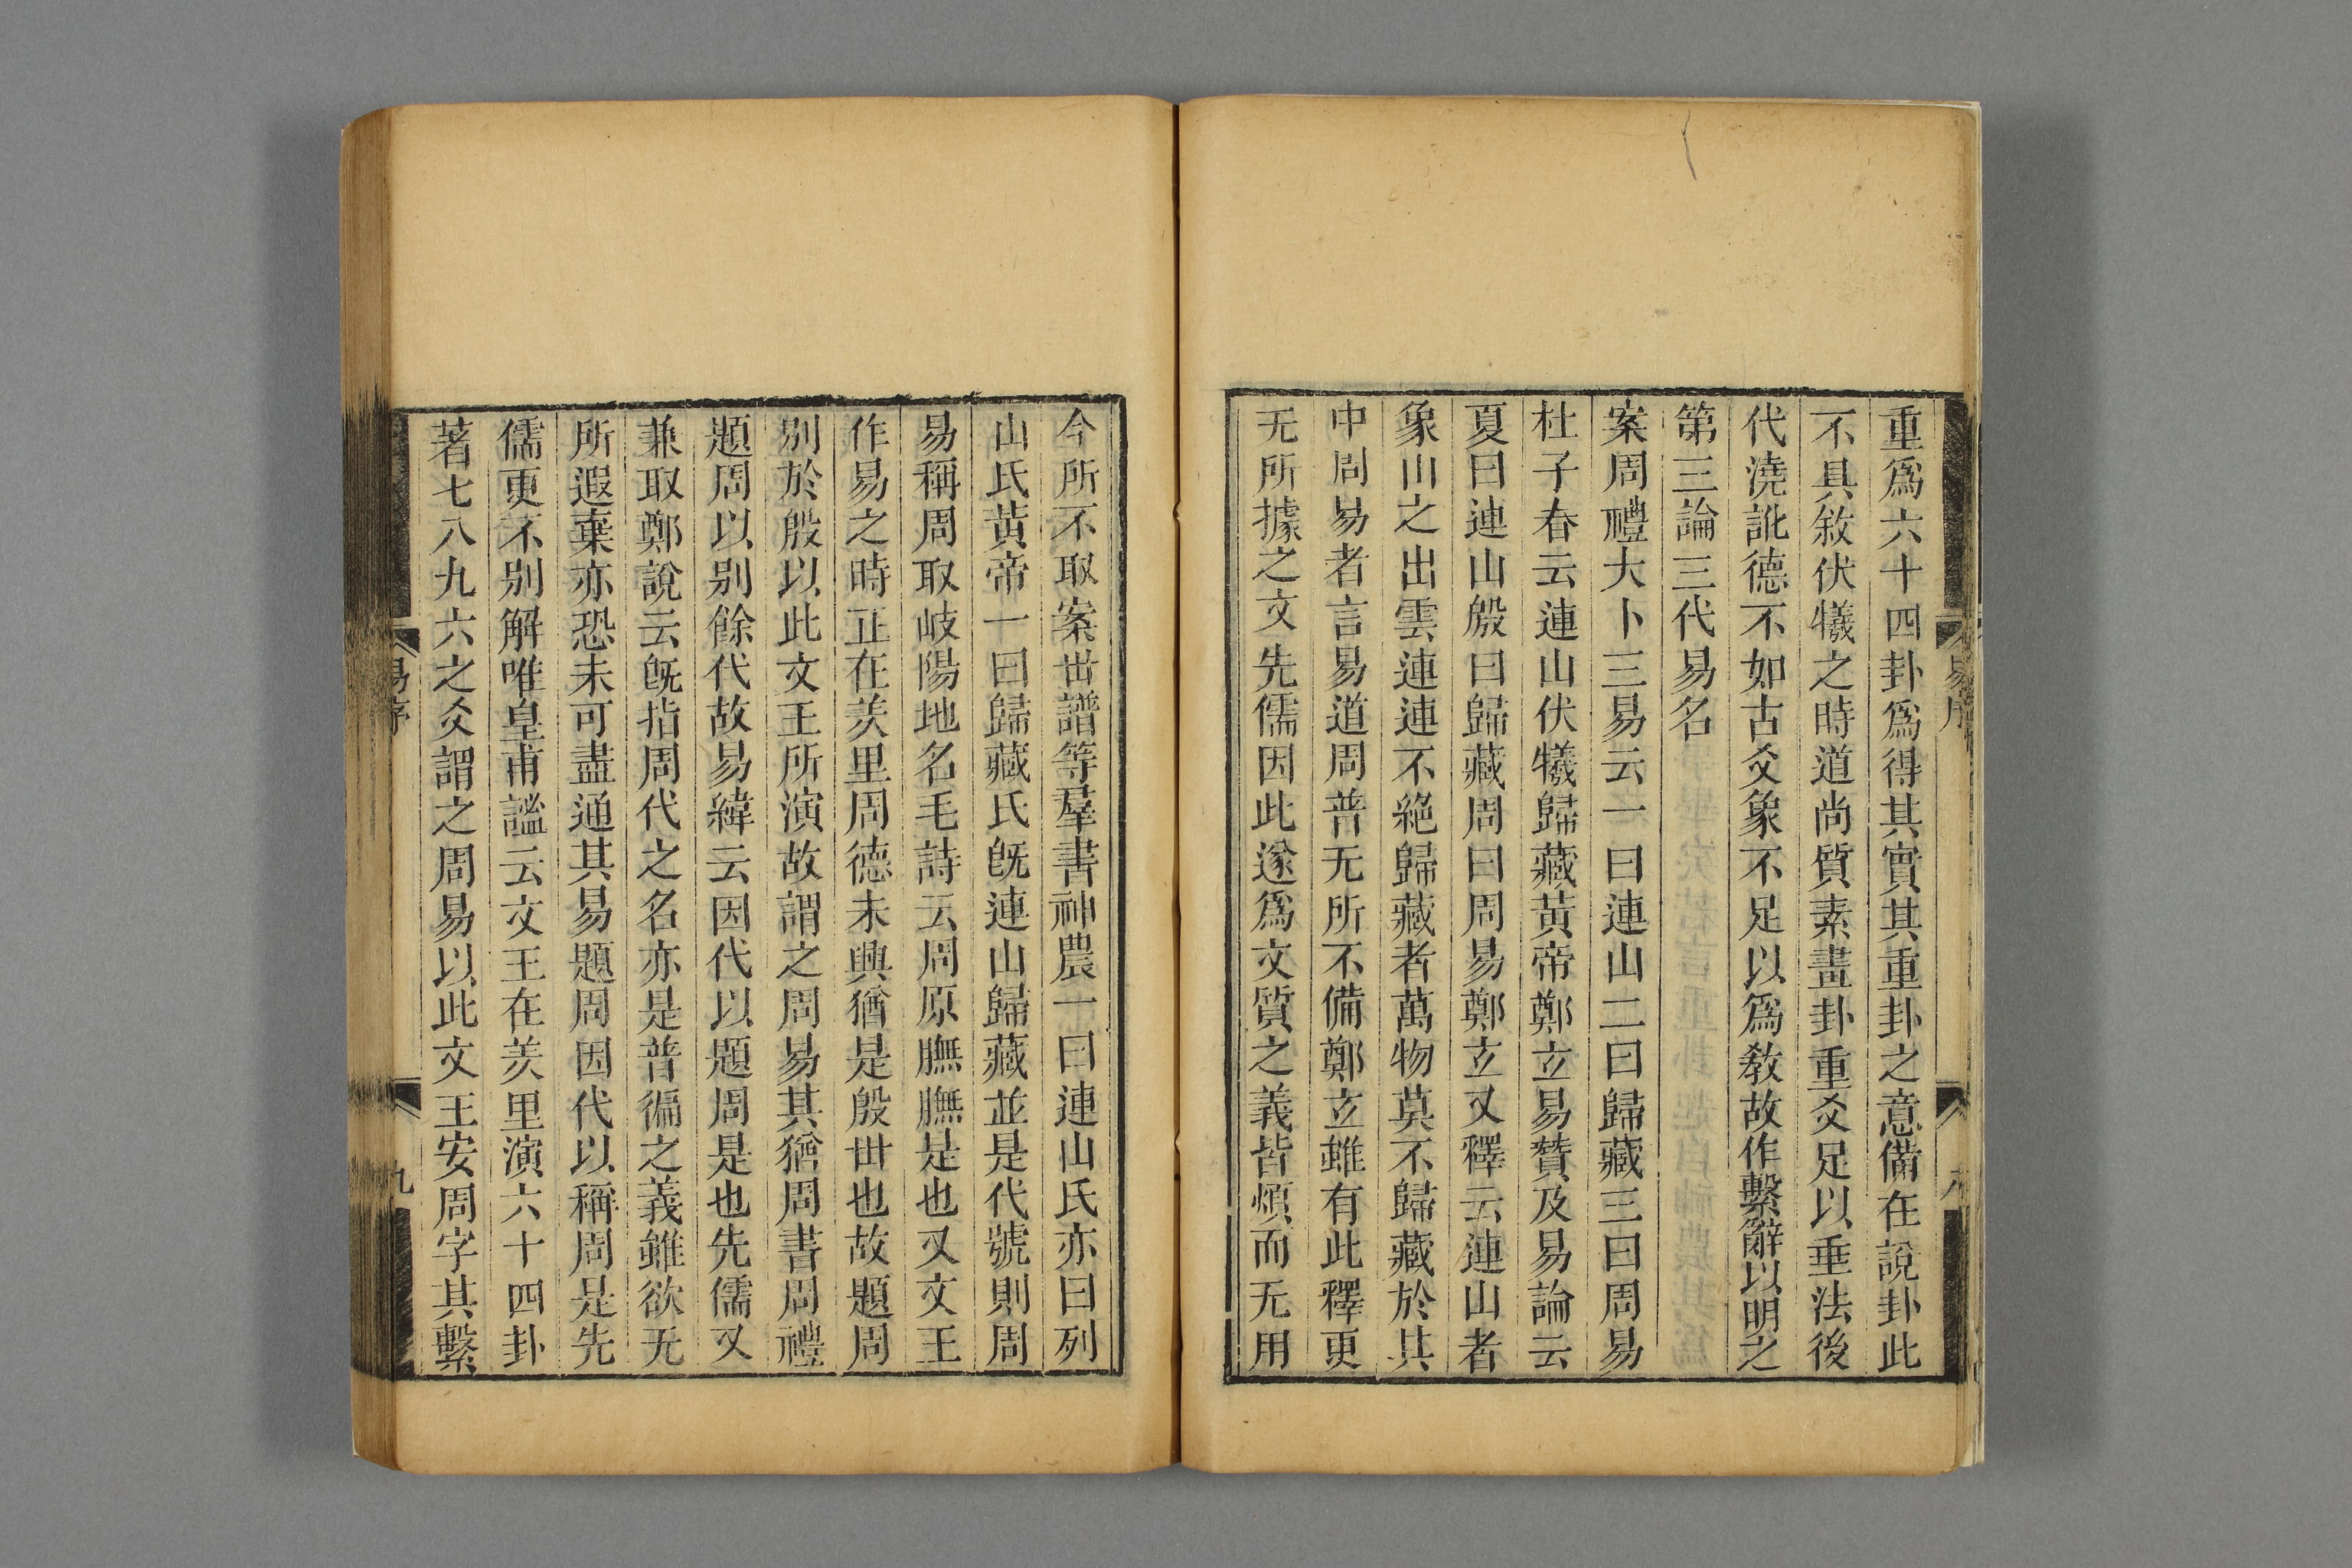 重爲六十四卦爲得其實其重卦之意備在說卦此
不具敘伏犧之時道尚質素畫卦重爻足以垂法後
代澆訛德不如古爻象不足以爲敎故作繫辭以明之
第三論三代易名
案周禮大卜三易云一曰連山二曰歸藏三曰周易
杜子春云連山伏犧歸藏黃帝鄭玄易贊及易論云
夏曰連山殷曰歸藏周曰周易鄭玄又釋云連山者
象山之出雲連連不絕歸藏者萬物莫不歸藏於其
中周易者言易道周普无所不備鄭玄雖有此釋更
无所據之文先儒因此遂爲文質之義皆煩而无用
今所不取案世譜等羣書神農一曰連山氏亦曰列
山氏黃帝一曰歸藏氏旣連山歸藏並是代號則周
易稱周取岐陽地名毛詩云周原膴膴是也又文王
作易之時正在羑里周德未興猶是殷世也故題周
別於殷以此文王所演故謂之周易其猶周書周禮
題周以別餘代故易緯云因代以題周是也先儒又
兼取鄭說云旣指周代之名亦是普徧之義雖欲无
所遐棄亦恐未可盡通其易題周因代以稱周是先
儒更不別解唯皇甫謐云文王在羑里演六十四卦
著七八九六之爻謂之周易以此文王安周字其繫
易序
九